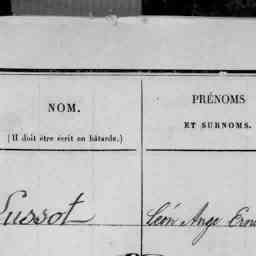 NOM.
(Il doit être écrit en bâtarde.)
PRÉNOMS
ET SURNOMS.
Lussot Léon Ange